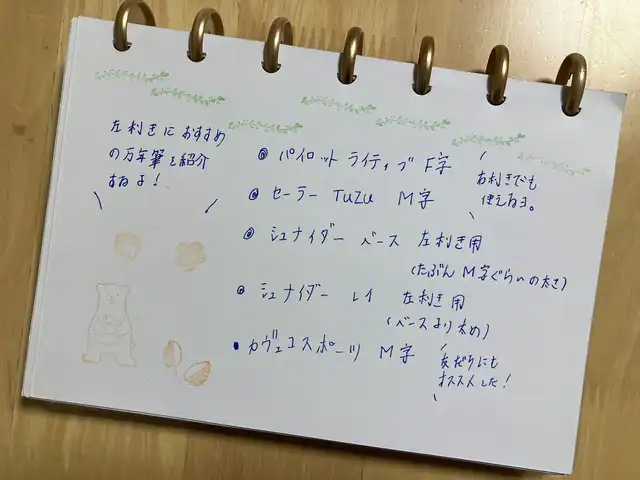 左利きにおすすめ
の万年筆を紹介
するよ！
◎ パイロット ライティブ F字
右利きでも
使えるヨ。
◎ セーラー TUZU M字
◎ シュナイダー ベース 左利き用
(たぶん M字ぐらいの太さ)
◎ シュナイダー レイ 左利き用
(ベースより太め)
● カヴェコスポーツ M字
友だちにも
オススメした！